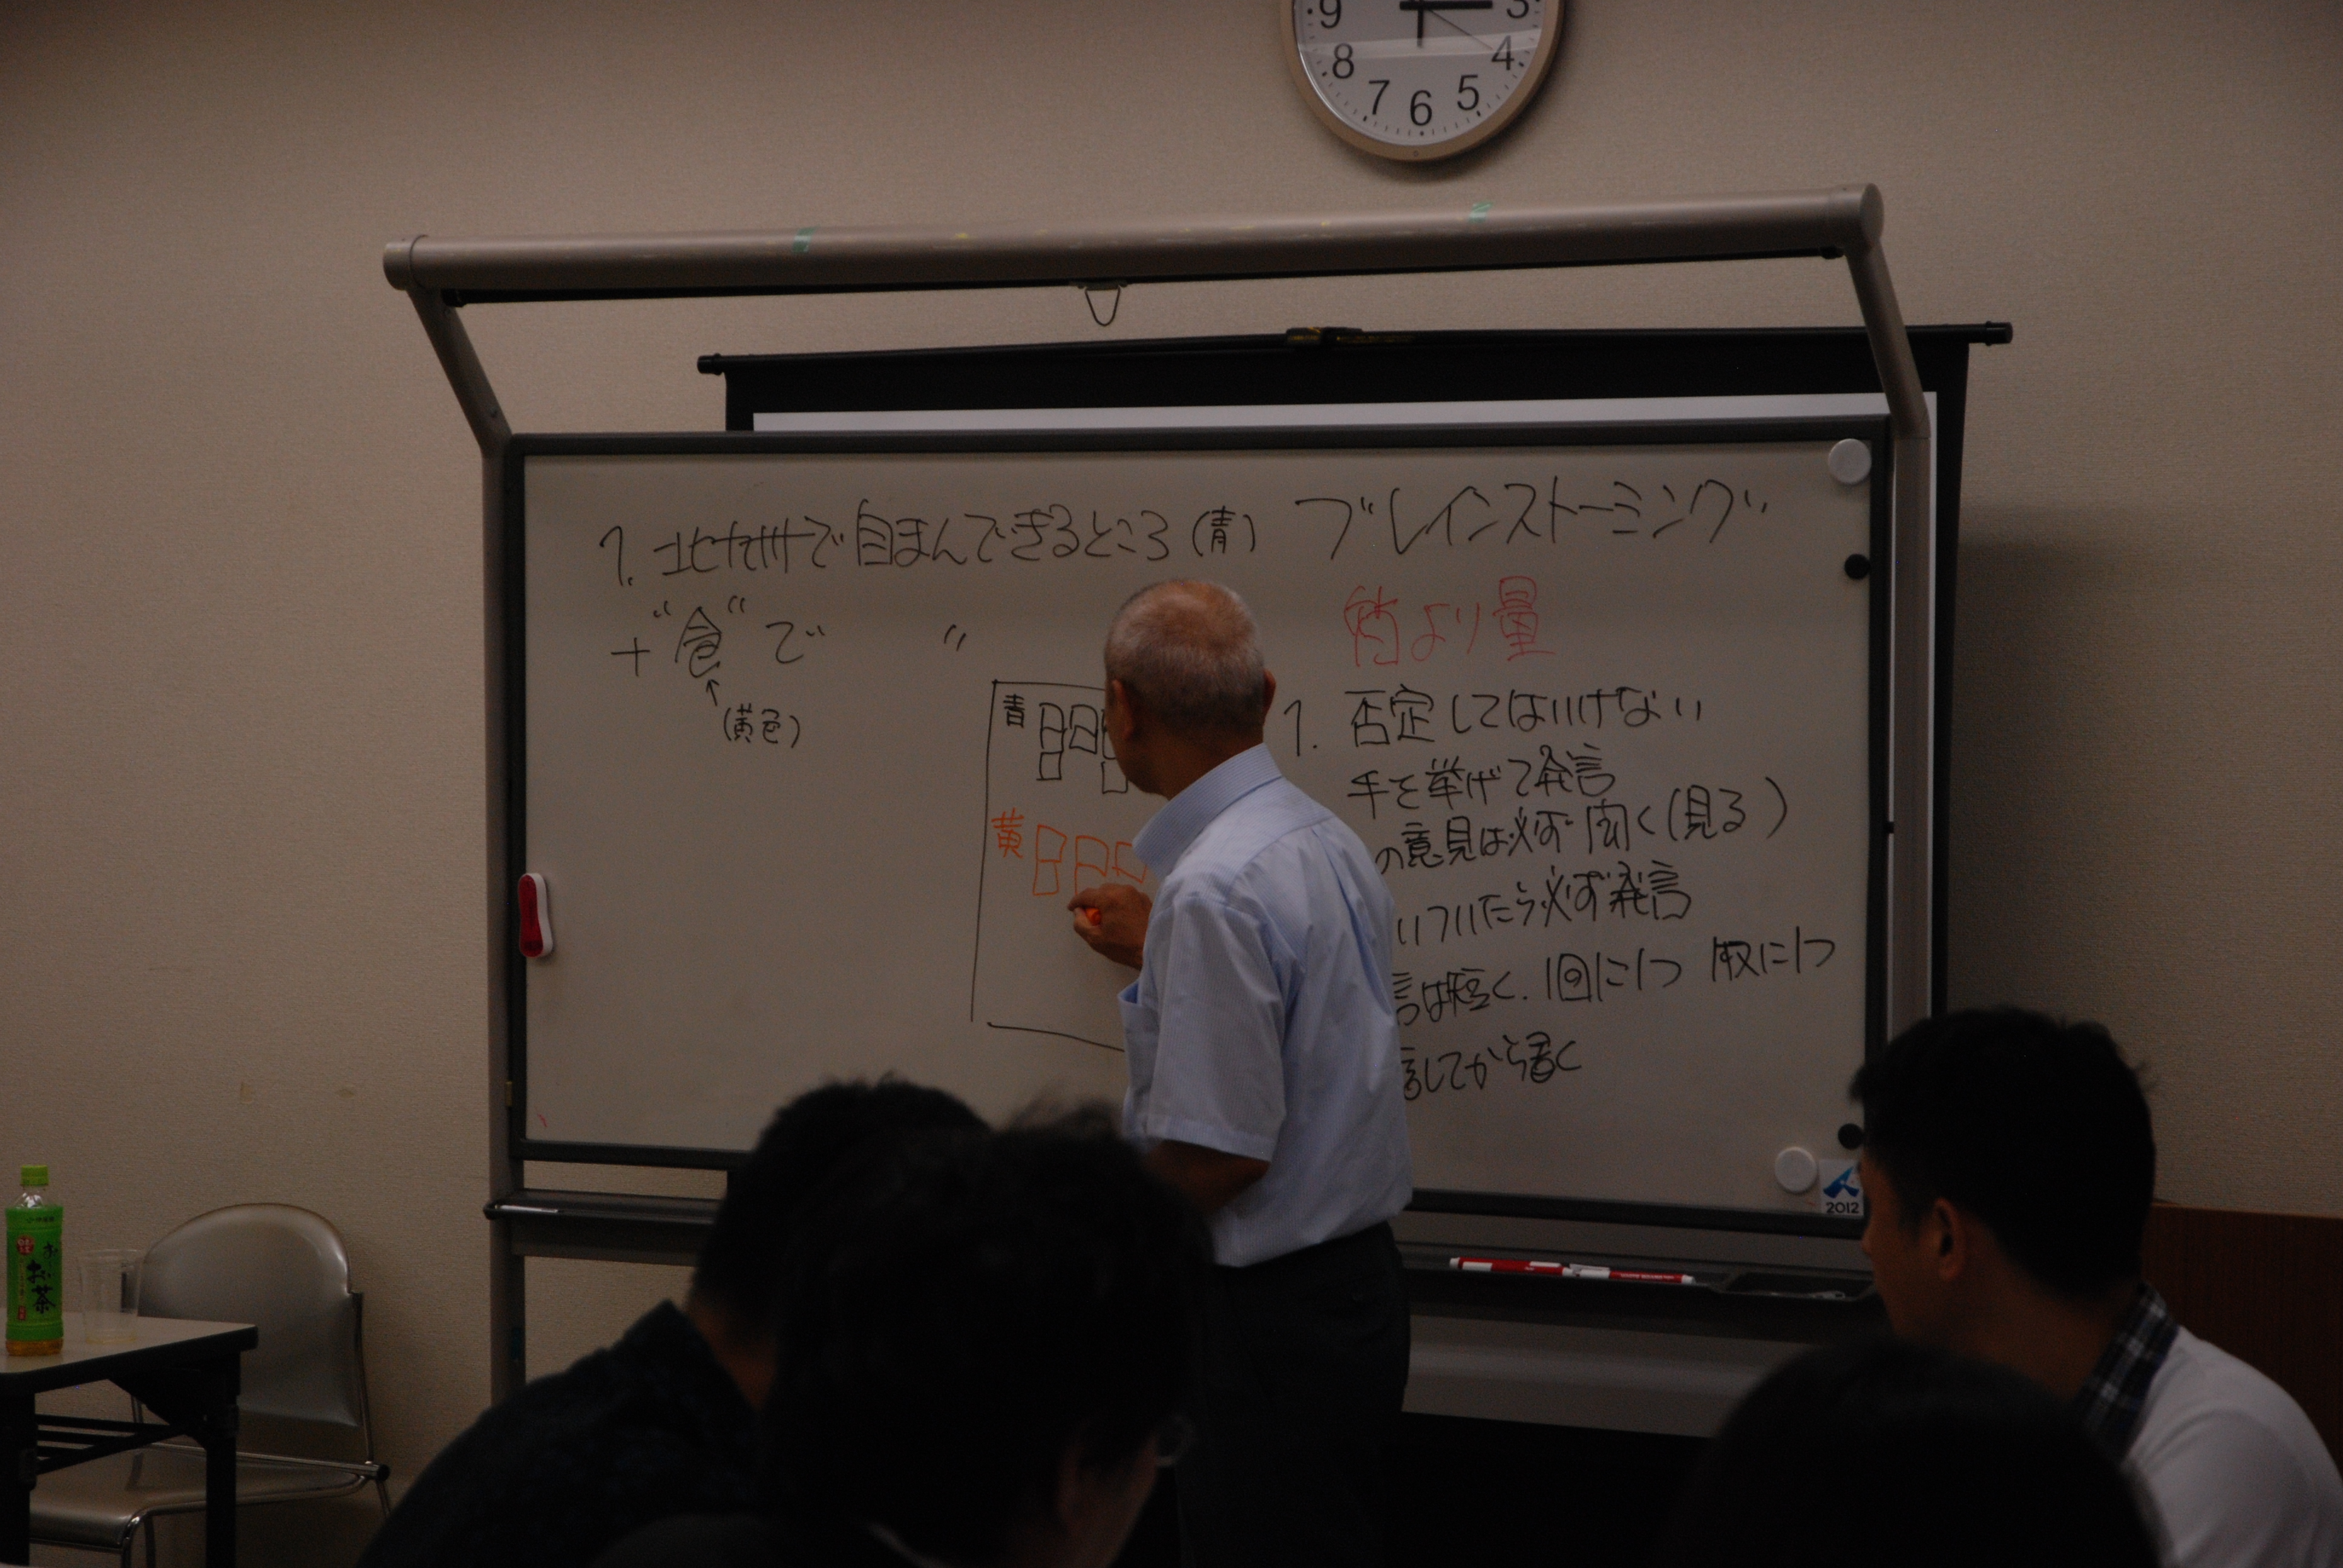 9 3
8 4
7 6 5
1. 北九州で自まんできるところ(青)
+"食"で 〃
↑
(黄色)
青
黄
ブレインストーミング
質より量
1. 否定してはいけない
手を挙げて発言
の意見は必ず聞く(見る)
いついたら必ず発言
言は短く. 1回に1つ 枚に1つ
言してから書く
2012
お〜い
お茶